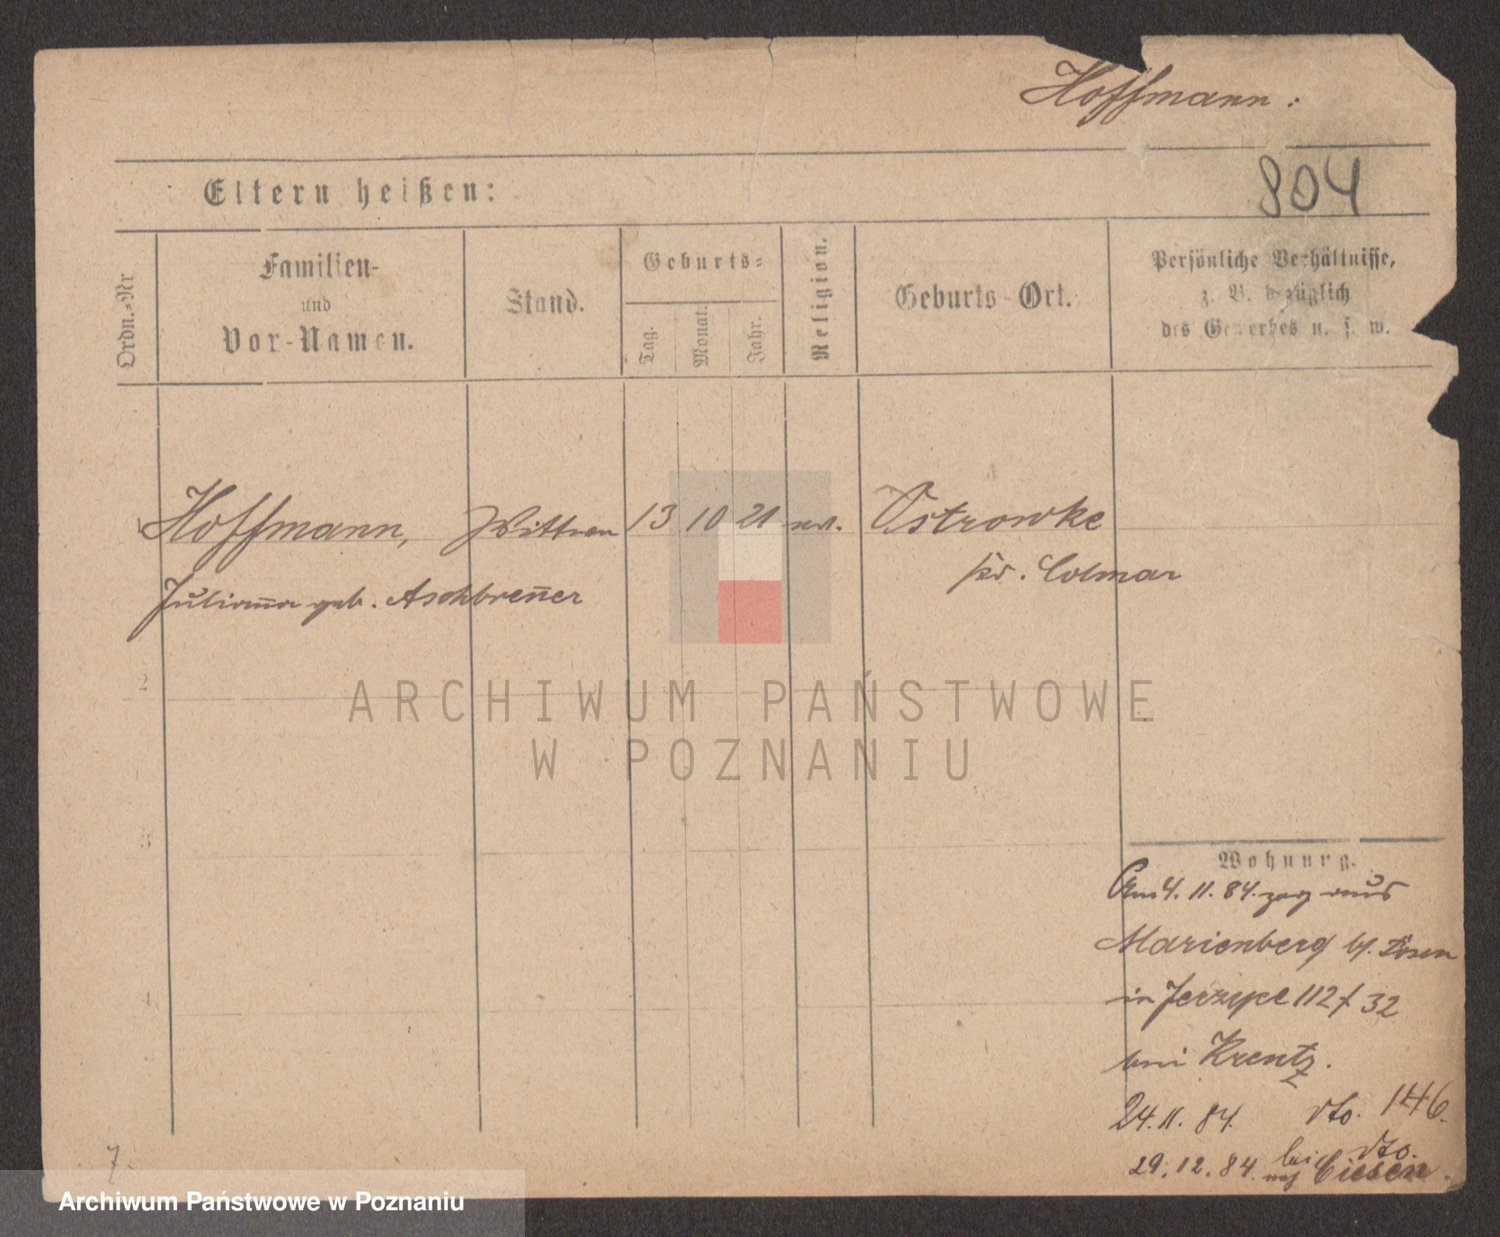 Hoffmann:
804
Eltern heißen:
Ordn.-Nr
Familien-
und
Vor-Namen.
Stand.
Geburts-
Tag.
Monat.
Jahr.
Religion.
Geburts-Ort.
Persönliche Verhältnisse,
z. B. bezüglich
des Gewerbes u. s. w.
Hoffmann, Wittwe 13 10 21 ev. Ostrowke
Juliana geb. Aschbrenner
Kr. Colmar
ARCHIWUM PAŃSTWOWE
W POZNANIU
Wohnung.
Am 4. 11. 84. zog aus
Marienberg b/. Posen
in Jerzyce 112 f 32
bei Krentz.
24. 11. 84. dto. 146.
29. 12. 84. bei dto.
7.
Archiwum Państwowe w Poznaniu